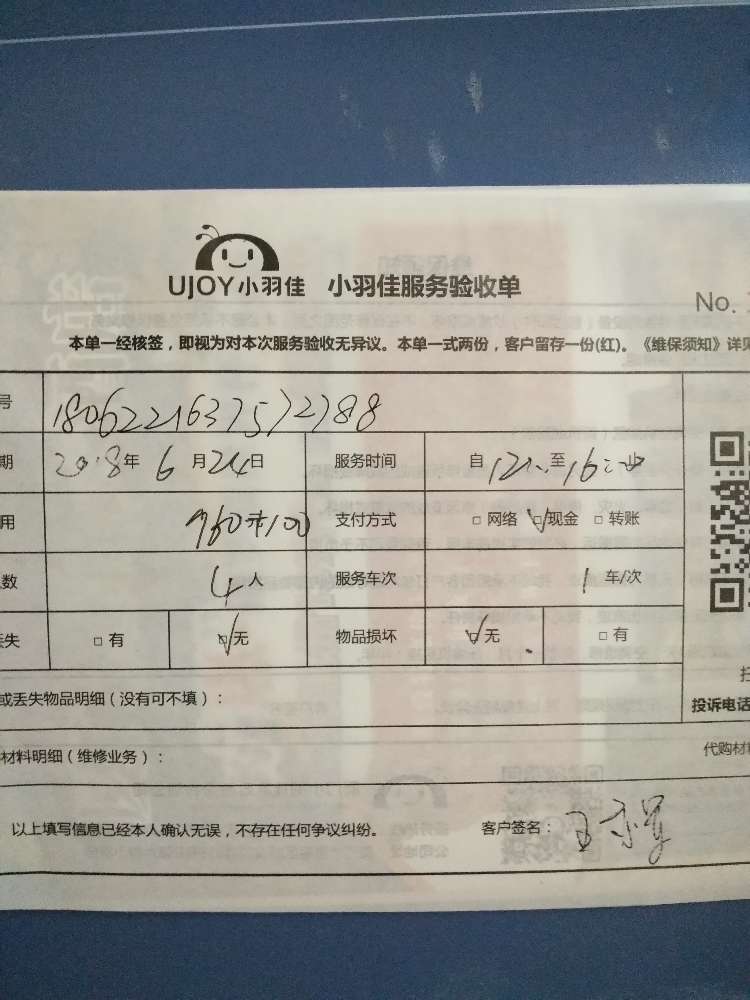 UJOY小羽佳 小羽佳服务验收单
No.
本单一经核签，即视为对本次服务验收无异议。本单一式两份，客户留存一份(红)。《维保须知》详见
号 1806221637572788
期 2018年 6 月24日 服务时间 自 12:00 至 16:00 止
用 960+100 支付方式 □ 网络 ☑现金 □ 转账
数 4 人 服务车次 1 车/次
丢失 □ 有 ☑无 物品损坏 ☑无 □ 有
或丢失物品明细（没有可不填）：
投诉电话
材料明细（维修业务）： 代购材
以上填写信息已经本人确认无误，不存在任何争议纠纷。 客户签名： 王